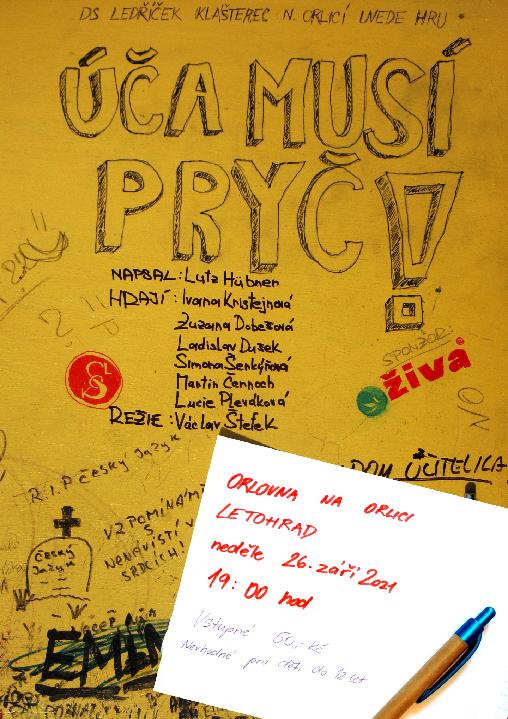 DS LEDŘÍČEK KLÁŠTEREC N. ORLICÍ UVEDE HRU
ÚČA MUSÍ
PRYČ!
NAPSAL: Lutz Hübner
HRAJÍ: Ivana Kristejnová
Zuzana Dobešová
Ladislav Dušek
Simona Šenkýřová
Martin Černoch
Lucie Pleváková
REŽIE: Václav Štefek
SPONZOR:
živa
R.I.P český jazyk
VZPOMÍNÁME
S
NENÁVISTÍ V
SRDCÍCH!
ČESKÝ
JAZYK
UČITELKA
ORLOVNA NA ORLICI
LETOHRAD
neděle 26. září 2021
19:00 hod
Vstupné 60,- Kč
Nevhodné pro děti do 12 let